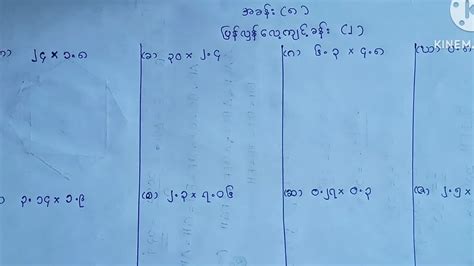 အခန်း (၈)
ပြန်လှန်လေ့ကျင့်ခန်း (၂)
KINEM
၂၄ × ၁.၈ (ခ) ၃၀ × ၂.၄ (ဂ) ၆.၃ × ၄.၈ (ဃ)
၃.၁၄ × ၁.၉ (စ) ၂.၃ × ၇.၀၆ (ဆ) ၀.၂၇ × ၀.၃ (ဇ) ၂.၅ ×